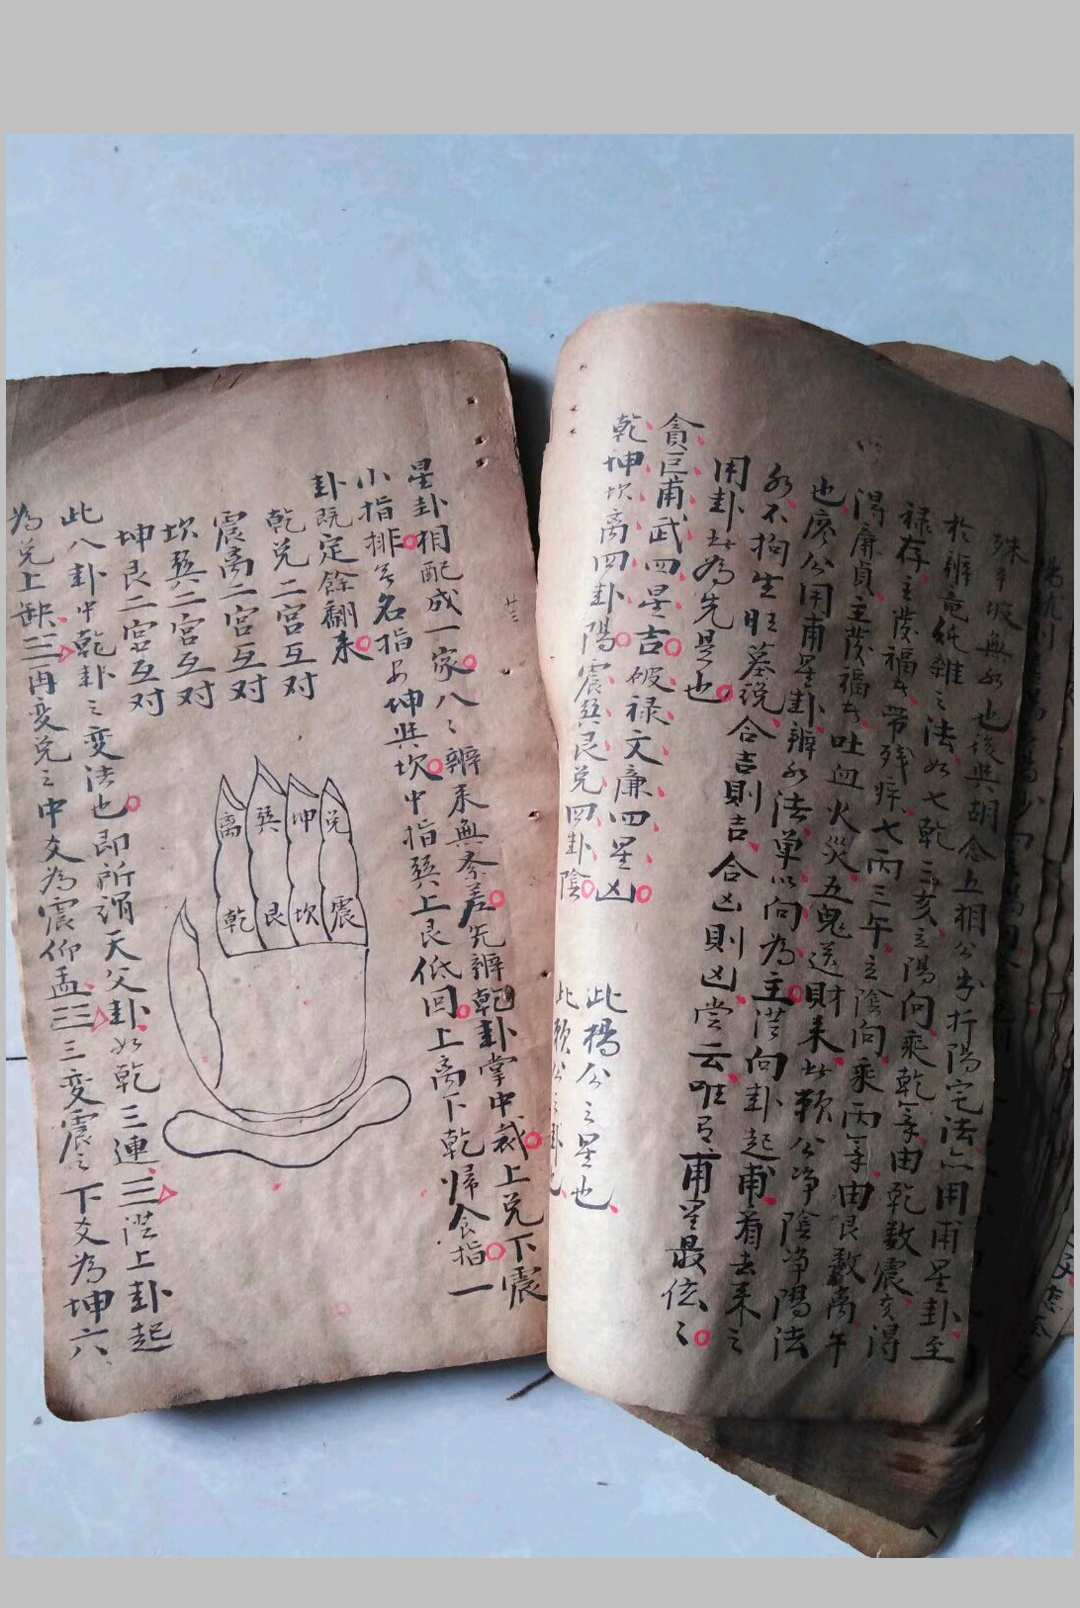 殊平坡無水也後與胡念五相公步折陽宅法亦用甫星卦至
於辨竜純雜之法如七乾三亥立陽向乘乾氣由乾數震亥得
禄存主發福出带殘疾七丙三午立陰向乘丙氣由艮數離午
得廉貞主發福出吐血火災五鬼送財来此賴公净陰净陽法
也廖公用甫星卦辨水法單以向為主從向卦起甫看去来之
水不拘生旺墓説合吉則吉合凶則凶尝云唯有甫星最低〻
用卦此為先是也
貪巨甫武四星吉破禄文廉四星凶 此楊公之星也
乾坤坎离四卦陽震巽艮兑四卦陰 此賴公之卦也
星卦相配成一家八〻辨来無参差先辨乾卦掌中裁上兑下震
小指排无名指安坤與坎中指巽上艮低回上离下乾歸食指一
卦既定餘翻来
乾兑二宫互对
震离二宫互对
坎巽二宫互对
坤艮二宫互对
兑 坤 巽 离
震 坎 艮 乾
此八卦中乾卦之变法也即所謂天父卦如乾三連☰從上卦起
為兑上缺☱再变兑之中爻為震仰盂☳三变震之下爻為坤六